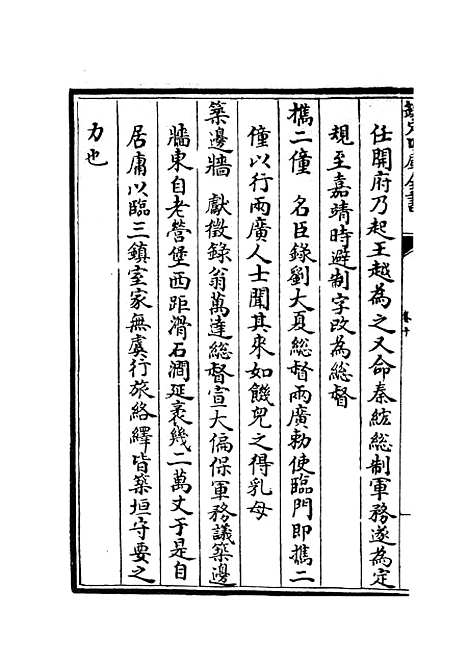 欽定四庫全書
卷十
仕開府乃起王越為之又命秦紘總制軍務遂為定
規至嘉靖時避制字改為總督
攜二僮　名臣錄劉大夏總督兩廣勅使臨門即攜二
僮以行兩廣人士聞其来如饑兒之得乳母
築邊牆　獻徵錄翁萬達總督宣大偏保軍務議築邊
牆東自老營堡西距滑石澗延袤幾二萬丈于是自
居庸以臨三鎮室家無虞行旅絡繹皆築垣守要之
力也